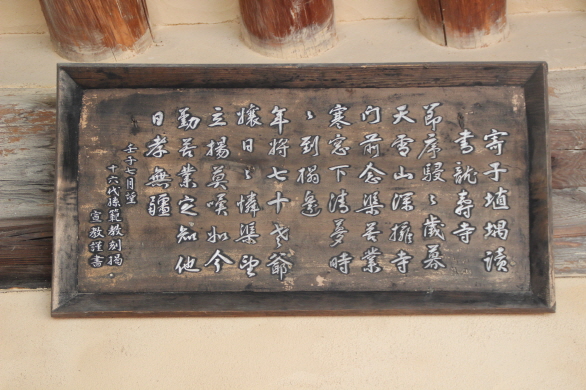 寄子埴堣讀
書龍壽寺
節序駸〻歲暮
天雪山深擁寺
門前念渠苦業
寒窓下淸夢時
〻到榻邊
年將七十老爺
孃日〻憐渠望
立揚莫嘆如今
勤苦業定知他
日孝無疆
壬子七月望
十六代孫範敎刻揭
宣敎謹書